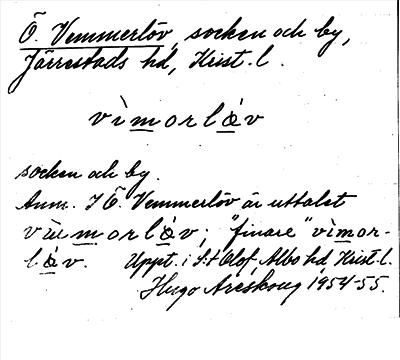 Ö. Vemmerlöv, socken och by,
Järrestads hd, Krist. l.
vìmorlǿv
socken och by.
Anm. I Ö. Vemmerlöv är uttalet
vìmorlǿv; "finare" vìmor-
lǿv. Uppt. i S:t Olof, Albo hd, Krist. l.
Hugo Areskoug 1954-55.